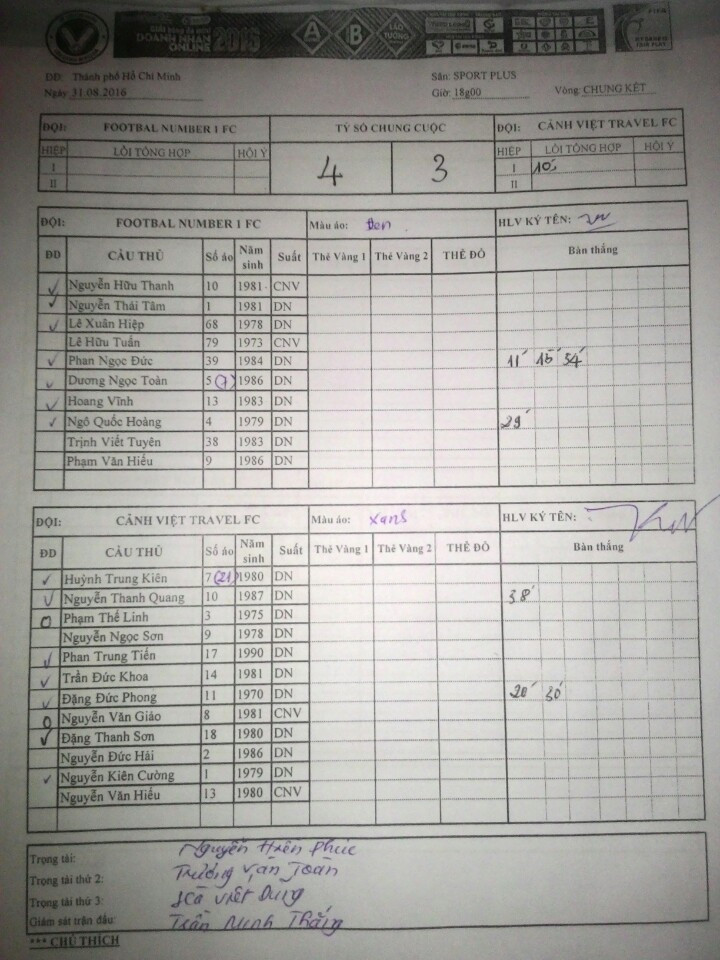 DOANH NHÂN
ONLINE 2016
A B
DĐ: Thành phố Hồ Chí Minh Sân: SPORT PLUS
Ngày 31.08.2016 Giờ: 18g00 Vòng: CHUNG KẾT
ĐỘI: FOOTBAL NUMBER 1 FC TỶ SỐ CHUNG CUỘC ĐỘI: CẢNH VIỆT TRAVEL FC
HIỆP LỖI TỔNG HỢP HỘI Ý 4 3 HIỆP LỖI TỔNG HỢP HỘI Ý
I I 10'
II II
ĐỘI: FOOTBAL NUMBER 1 FC Màu áo: Đen HLV KÝ TÊN:
ĐD CẦU THỦ Số áo Năm sinh Suất Thẻ Vàng 1 Thẻ Vàng 2 THẺ ĐỎ Bàn thắng
✓ Nguyễn Hữu Thanh 10 1981 CNV
✓ Nguyễn Thái Tâm 1 1981 DN
✓ Lê Xuân Hiệp 68 1978 DN
Lê Hữu Tuấn 79 1973 CNV
✓ Phan Ngọc Đức 39 1984 DN 11' 15' 54'
✓ Dương Ngọc Toàn 5 (7) 1986 DN
✓ Hoang Vĩnh 13 1983 DN
✓ Ngô Quốc Hoàng 4 1979 DN 29'
Trịnh Viết Tuyên 38 1983 DN
Phạm Văn Hiếu 9 1986 DN
ĐỘI: CẢNH VIỆT TRAVEL FC Màu áo: Xanh HLV KÝ TÊN:
ĐD CẦU THỦ Số áo Năm sinh Suất Thẻ Vàng 1 Thẻ Vàng 2 THẺ ĐỎ Bàn thắng
✓ Huỳnh Trung Kiên 7 (21) 1980 DN
✓ Nguyễn Thanh Quang 10 1987 DN 38'
O Phạm Thế Linh 3 1975 DN
Nguyễn Ngọc Sơn 9 1978 DN
✓ Phan Trung Tiến 17 1990 DN
✓ Trần Đức Khoa 14 1981 DN
✓ Đặng Đức Phong 11 1970 DN 20' 30'
O Nguyễn Văn Giáo 8 1981 CNV
✓ Đặng Thanh Sơn 18 1980 DN
Nguyễn Đức Hải 2 1986 DN
✓ Nguyễn Kiên Cường 1 1979 DN
Nguyễn Văn Hiếu 13 1980 CNV
Trọng tài: Nguyễn Hiền Phúc
Trọng tài thứ 2: Trương Văn Toàn
Trọng tài thứ 3: Hà Viết Dung
Giám sát trận đấu: Trần Minh Thắng
*** CHÚ THÍCH